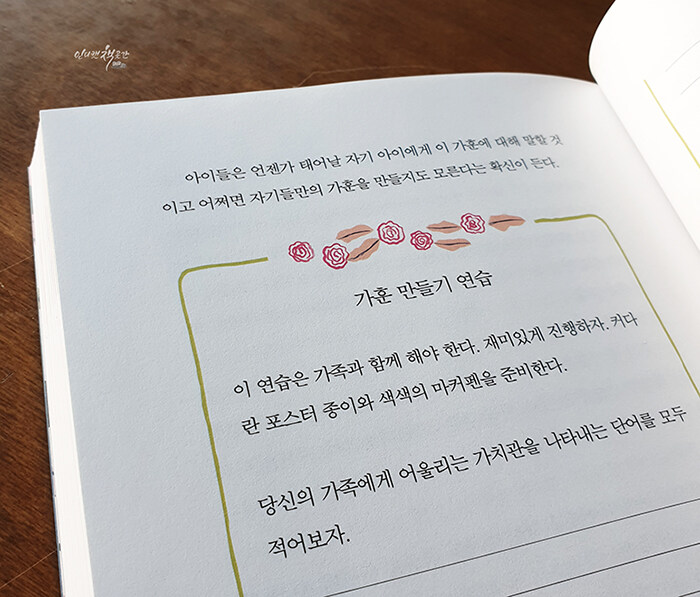 인디캣책곳간
아이들은 언젠가 태어날 자기 아이에게 이 가훈에 대해 말할 것
이고 어쩌면 자기들만의 가훈을 만들지도 모른다는 확신이 든다.
가훈 만들기 연습
이 연습은 가족과 함께 해야 한다. 재미있게 진행하자. 커다
란 포스터 종이와 색색의 마커펜을 준비한다.
당신의 가족에게 어울리는 가치관을 나타내는 단어를 모두
적어보자.